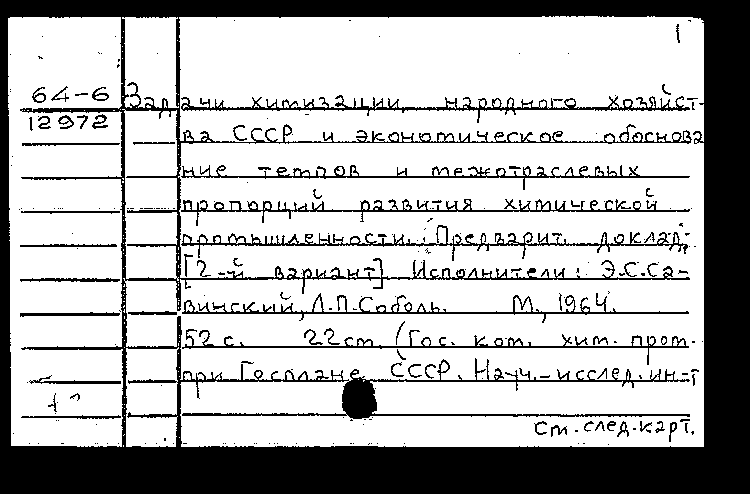 1
64-6
12972
Задачи химизации народного хозяйст-
ва СССР и экономическое обоснова
ние темпов и межотраслевых
пропорций развития химической
промышленности. Предварит. доклад.
[2-й вариант] Исполнители: Э.С.Са-
винский, Л.П.Соболь. М., 1964.
52 с. 22см. (Гос. ком. хим. пром.
при Госплане СССР. Науч.-исслед.ин-т
См. след.карт.